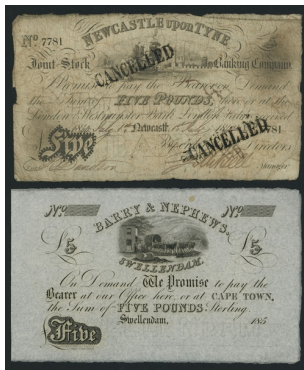 NEWCASTLE upon TYNE
No 7781
CANCELLED
Joint Stock Banking Company
Promise to pay the Bearer on Demand
the Sum of FIVE POUNDS, here or at the
London & Westminster Bank London Value received
Newcastle
CANCELLED
7781
Five
Directors
Manager
No No
BARRY & NEPHEWS,
£5 £5
SWELLENDAM.
On Demand We Promise to pay the
Bearer at our Office here, or at CAPE TOWN,
the Sum of FIVE POUNDS Sterling.
Swellendam, 185
Five